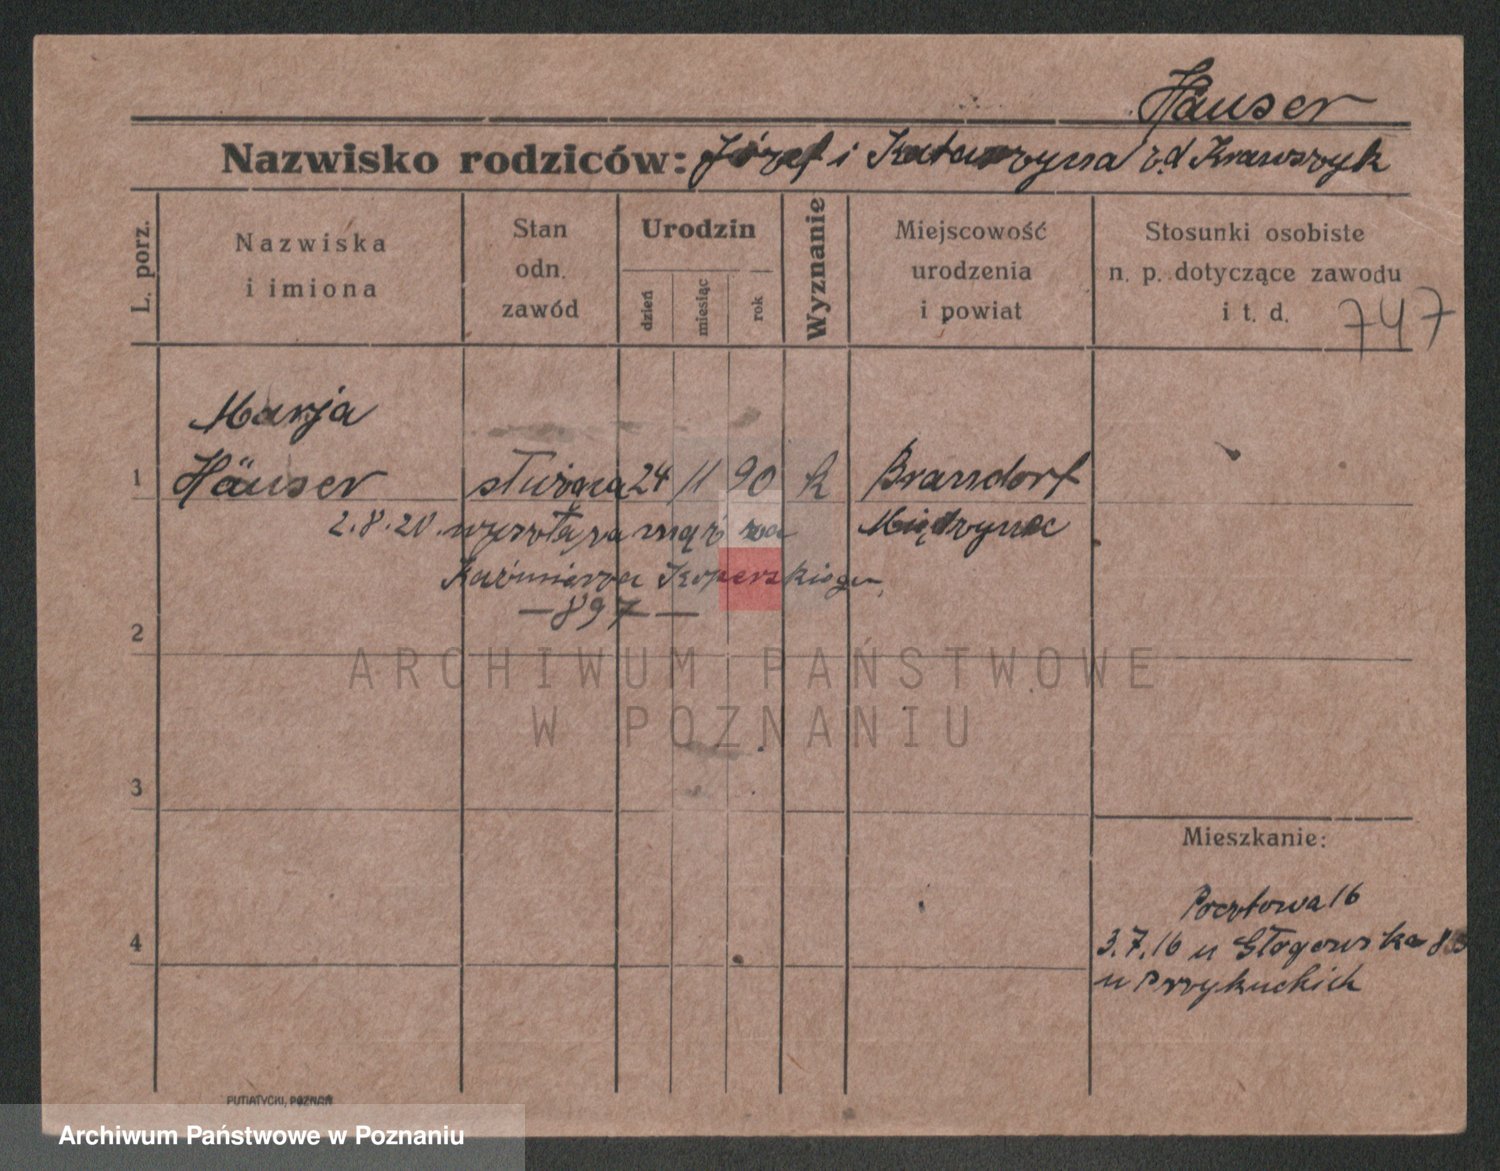 Häuser
Nazwisko rodziców: Józef i Katarzyna z d Krawczyk
L. porz.
Nazwiska
i imiona
Stan
odn.
zawód
Urodzin
dzień
miesiąc
rok
Wyznanie
Miejscowość
urodzenia
i powiat
Stosunki osobiste
n. p. dotyczące zawodu
i t. d.
747
Marja
1 Häuser służąca 24 11 90 k Bransdorf
2.8.20 wyszła za mąż za
Kaźmierza Koperskiego
—897—
2
3
4
Mieszkanie:
Pocztowa 16
3.7.16 u Głogowska
u Przykuckich
PUTIATYCKI, POZNAŃ
ARCHIWUM PAŃSTWOWE
W POZNANIU
Archiwum Państwowe w Poznaniu